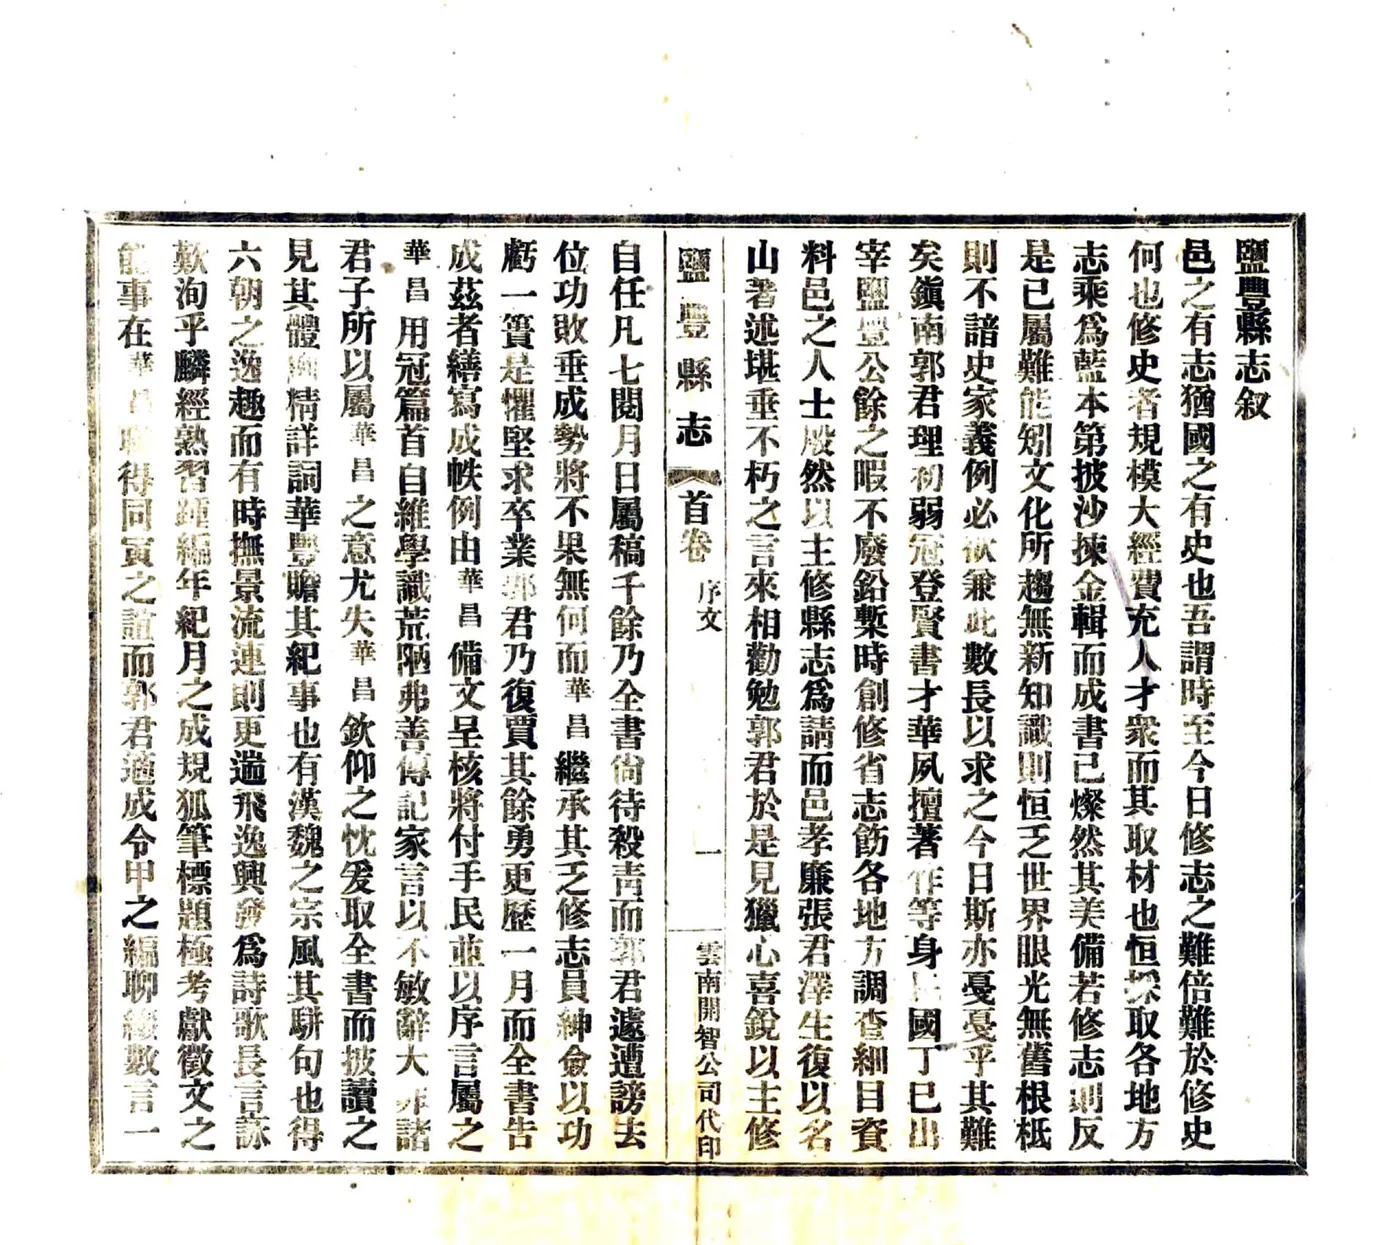 鹽豐縣志叙
邑之有志猶國之有史也吾謂時至今日修志之難倍難於修史
何也修史者規模大經費充人才衆而其取材也恒採取各地方
志乘爲藍本第披沙揀金輯而成書已燦然其美備若修志則反
是已屬難能矧文化所趨無新知識則恒乏世界眼光無舊根柢
則不諳史家義例必欲兼此數長以求之今日斯亦戞戞乎其難
矣鎭南郭君理初弱冠登賢書才華夙擅著作等身民國丁巳出
宰鹽豐公餘之暇不廢鉛槧時創修省志飭各地方調查細目資
料邑之人士殷然以主修縣志爲請而邑孝廉張君澤生復以名
山著述堪垂不朽之言來相勸勉郭君於是見獵心喜銳以主修
鹽豐縣志
首卷
序文
一
雲南開智公司代印
自任凡七閱月日屬稿千餘乃全書尙待殺靑而郭君遽遭謗去
位功敗垂成勢將不果無何而華昌繼承其乏修志員紳僉以功
虧一簣是懼堅求卒業郭君乃復賈其餘勇更歷一月而全書告
成茲者繕寫成帙例由華昌備文呈核將付手民並以序言屬之
華昌用冠篇首自維學識荒陋弗善傳記家言以不敏辭大非諸
君子所以屬華昌之意尤失華昌欽仰之忱爰取全書而披讀之
見其體精詳詞華豐贍其紀事也有漢魏之宗風其駢句也得
六朝之逸趣而有時撫景流連則更遄飛逸興發爲詩歌長言詠
歎洵乎麟經熟習踵編年紀月之成規狐筆標題極考獻徵文之
能事在華昌得同寅之誼而郭君適成令甲之編聊綴數言一